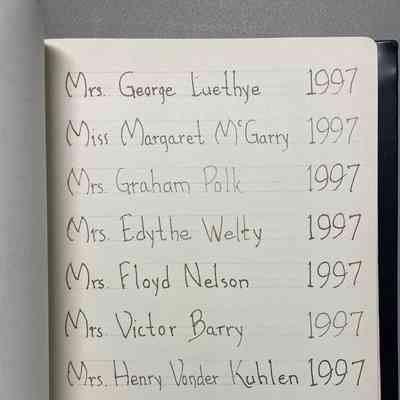 Mrs. George Luethye 1997
Miss Margaret McGarry 1997
Mrs. Graham Polk 1997
Mrs. Edythe Welty 1997
Mrs. Floyd Nelson 1997
Mrs. Victor Barry 1997
Mrs. Henry Vonder Kuhlen 1997